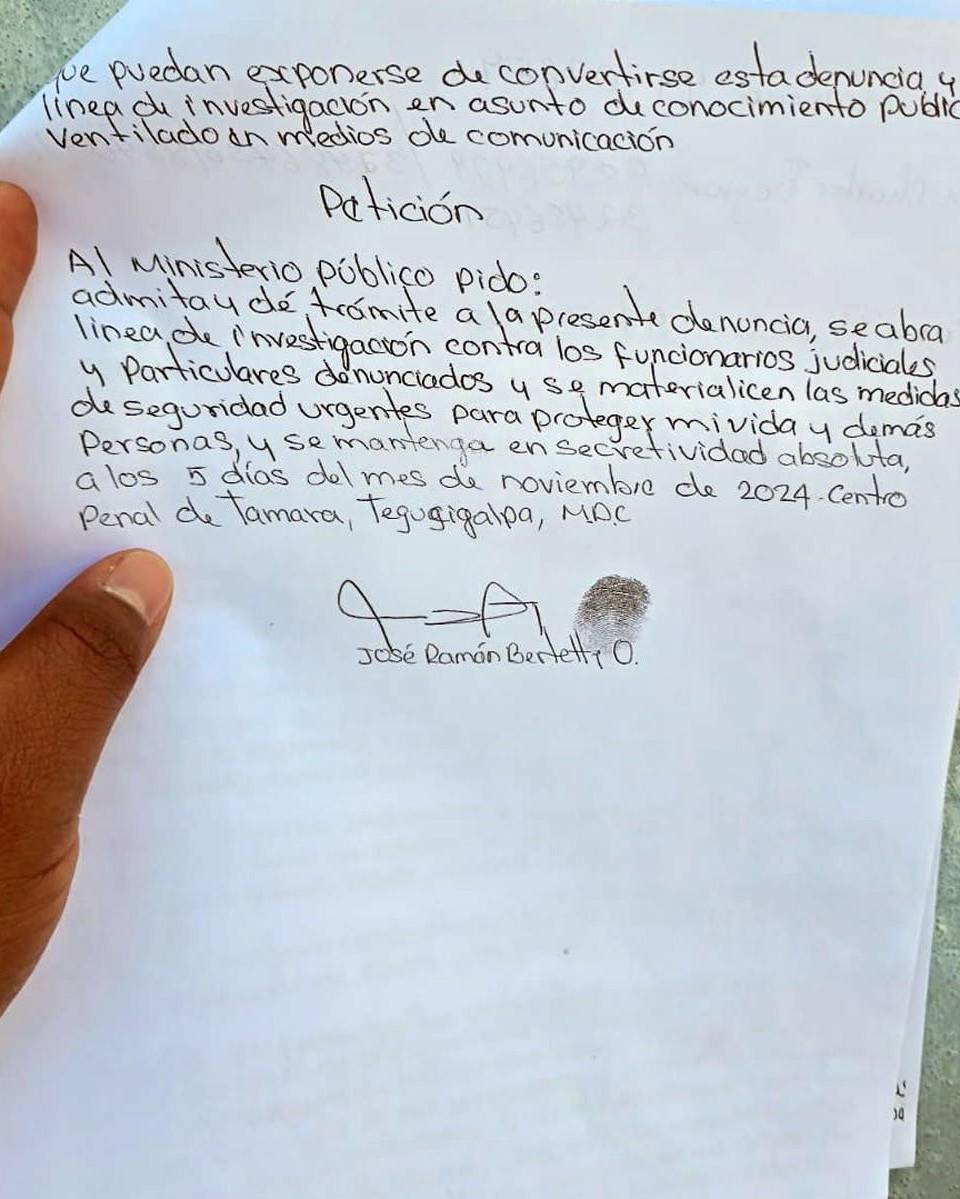 que puedan exponerse de convertirse esta denuncia y
línea de investigación en asunto de conocimiento public
ventilado en medios de comunicación
Petición
Al Ministerio público pido:
admita y dé trámite a la presente denuncia, se abra
línea de investigación contra los funcionarios judiciales
y Particulares denunciados y se materialicen las medidas
de seguridad urgentes para proteger mi vida y demás
Personas, y se mantenga en secretividad absoluta,
a los 5 días del mes de noviembre de 2024. Centro
Penal de Tamara, Tegucigalpa, MDC
José Ramón Bertetty O.